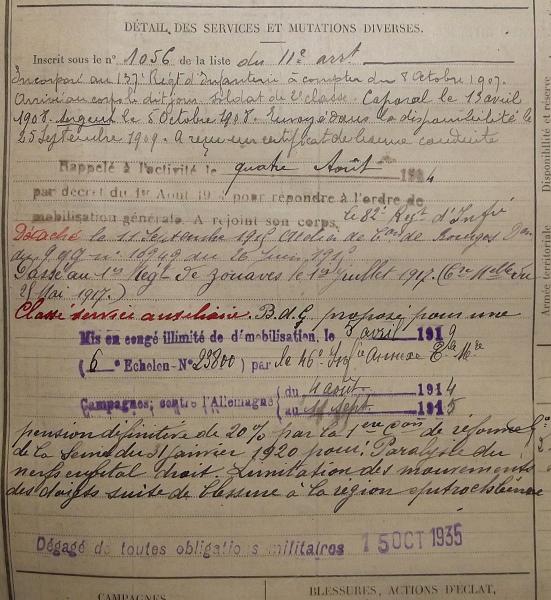 DÉTAIL DES SERVICES ET MUTATIONS DIVERSES.
Inscrit sous le n° 1056 de la liste du 11e arrt
Incorporé au 137e Régt d'Infanterie à compter du 8 Octobre 1907.
Arrivé au corps le dit jour, soldat de 2e classe. Caporal le 13 avril
1908. Sergent le 5 Octobre 1908. Envoyé dans la disponibilité le
25 Septembre 1909. A reçu un certificat de bonne conduite
Rappelé à l'activité le quatre Août 1914
par decret du 1er Août 19 pour répondre à l'ordre de
mobilisation générale. A rejoint son corps, le 82e Régt d'Infie
Détaché le 11 Septembre 1915 Atelier de Con de Bourges
au 9 n° 10949 du 26 Juin 1915
Passé au 1er Régt de Zouaves le 1er juillet 1917. (Cre Melle du
28 Mai 1917.)
Classé service auxiliaire. B.d.G proposé pour une
Mis en congé illimité de démobilisation, le 3 avril 1919
( 6 ° Echelon-N° 29800 ) par le 46e Infie Annexe
Campagnes: contre l'Allemagne du 4 août 1914
au 11 Sept 1915
pension définitive de 20% par la 1ère Con de réforme
de la Seine du 31 janvier 1920 pour: Paralysie du
nerf cubital droit. Limitation des mouvements
des doigts suite de blessure à la région épitrochléenne
Dégagé de toutes obligations militaires 15 OCT 1935
CAMPAGNES
BLESSURES, ACTIONS D'ÉCLAT,
Disponibilité et réserve
Armée territoriale